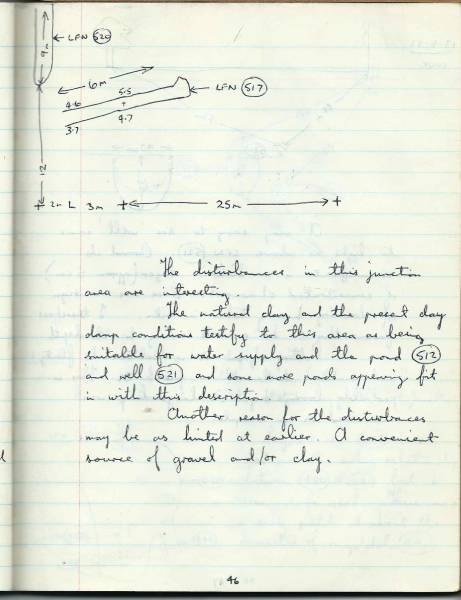 9m
← LFN 520
6m
← LFN 517
4.6 5.5
+
3.7 4.7
12
+ 2m L 3m + ← 25m → +
The disturbances in this junction
area are interesting
The natural clay and the present day
damp conditions testify to this area as being
suitable for water supply and the pond 512
and well 521 and some more ponds appearing fit
in with this description
Another reason for the disturbances
may be as hinted at earlier. A convenient
source of gravel and/or clay.
46